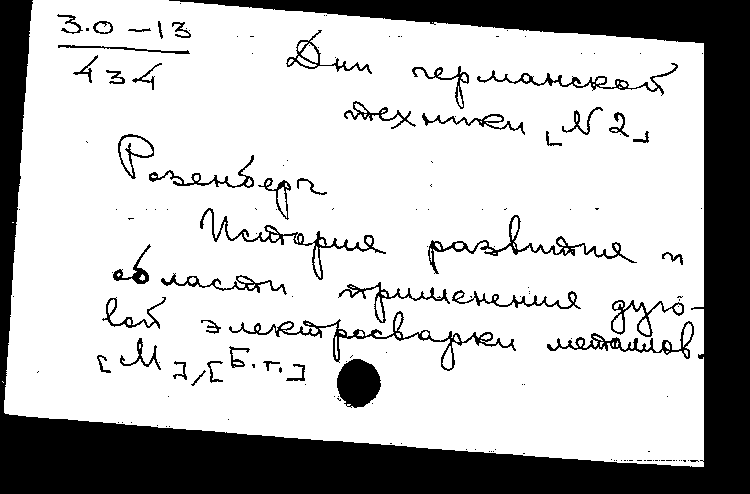 3.0-13
434
Дни германской
техники [N 2]
Розенберг
История развития и
области применения дуго-
вой электросварки металлов.
[М], [Б.г.]